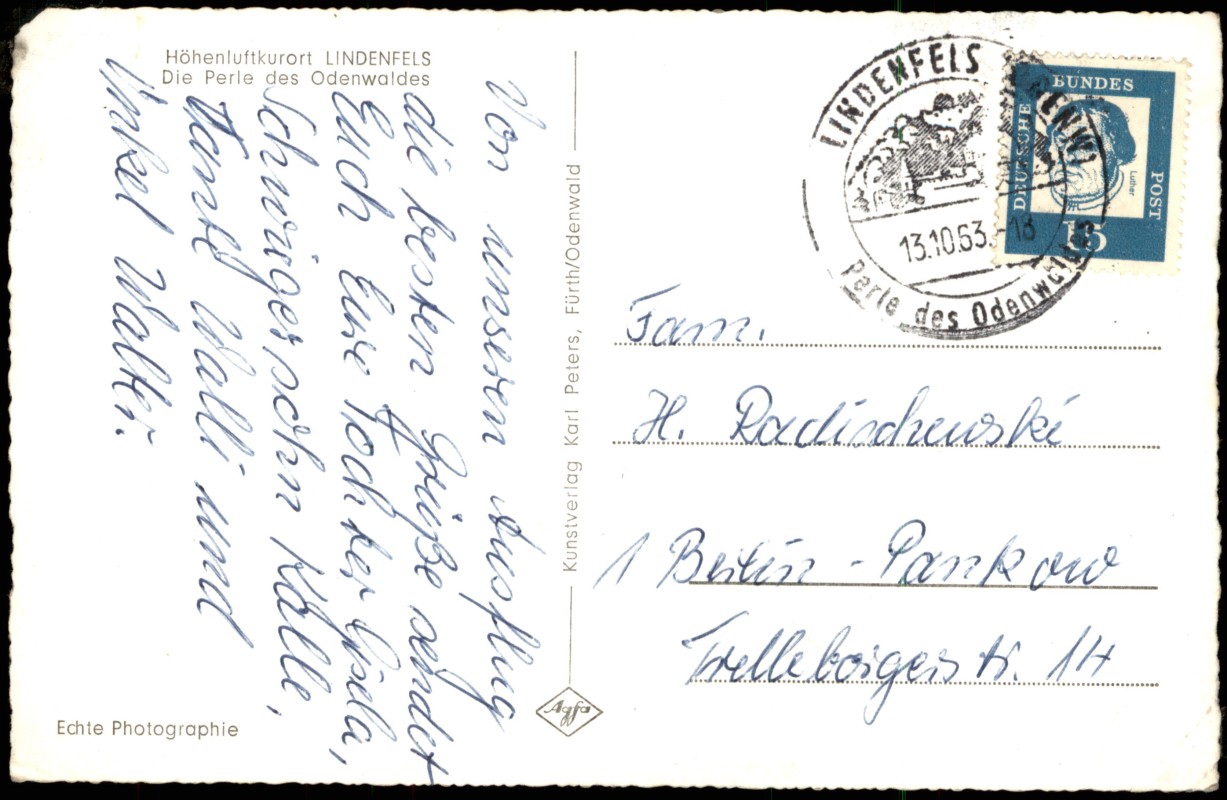 Höhenluftkurort LINDENFELS
Die Perle des Odenwaldes
Von unserem Ausflug
die besten Grüße sendet
Euch Eure Tochter Gisela,
Schwiegersohn Kalle,
Tante Walli und
Onkel Walter.
Echte Photographie
Kunstverlag Karl Peters, Fürth/Odenwald
Agfa
LINDENFELS
13.10.63.-18
Perle des Odenwaldes
DEUTSCHE
BUNDES
POST
Luther
15
Fam.
H. Radischewski
1 Berlin-Pankow
Trelleborgerstr. 14